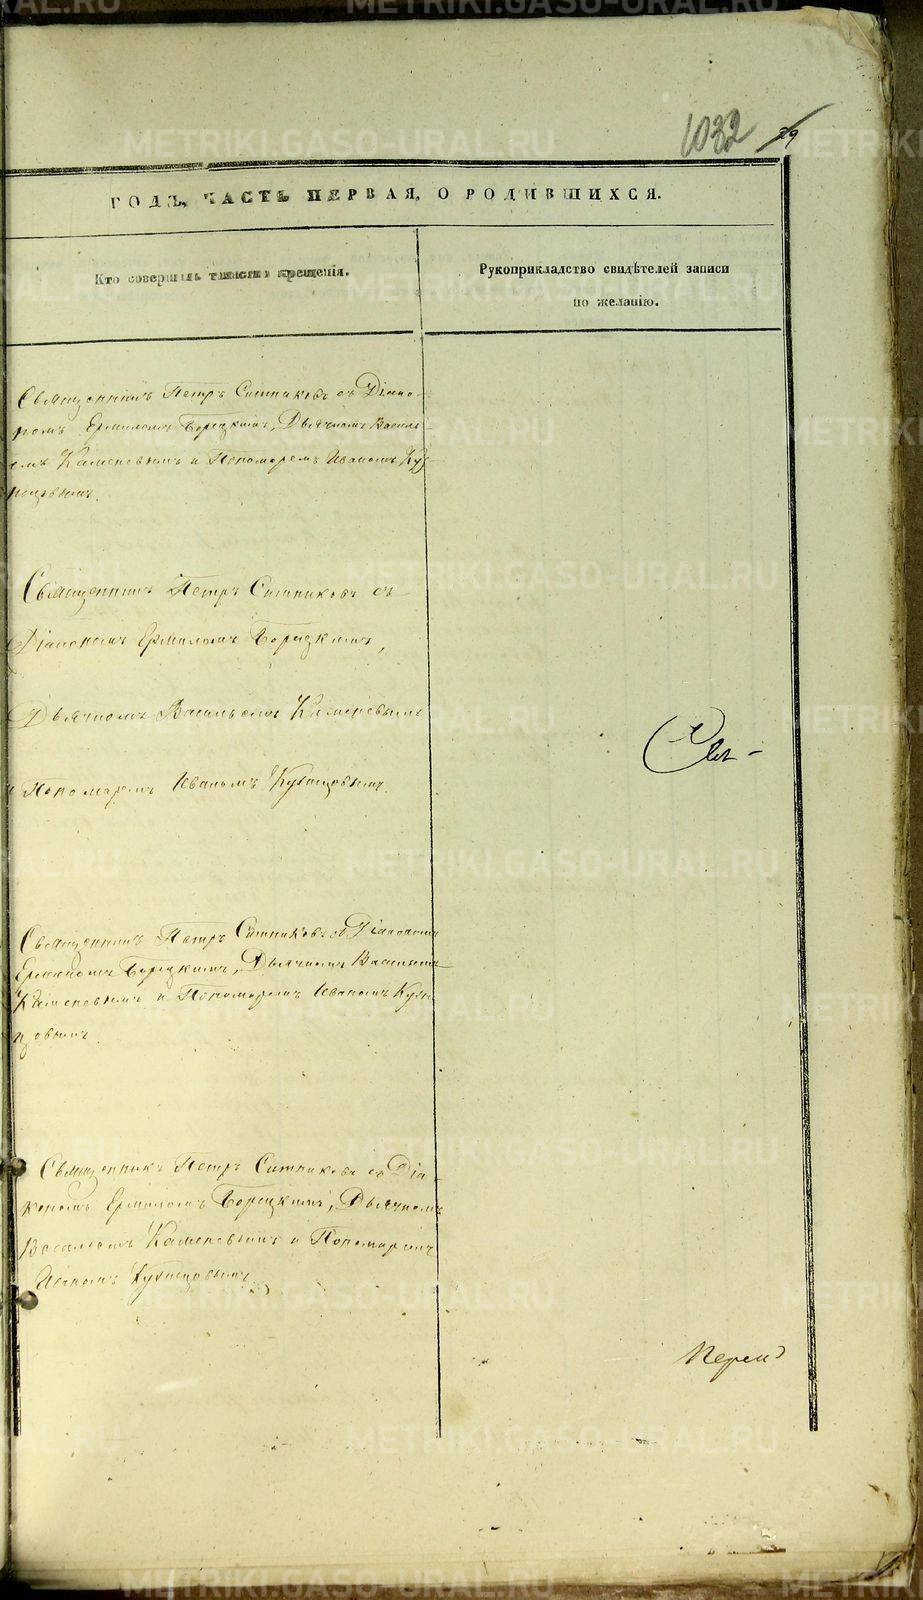 1032 29
ГОДЪ, ЧАСТЬ ПЕРВАЯ, О РОДИВШИХСЯ.
Кто совершалъ таинство крещенія.
Рукоприкладство свидѣтелей записи
по желанію.
Священникъ Петръ Ситниковъ съ Діако-
номъ Ермиломъ Борецкимъ, Дьячкомъ Василь-
емъ Каменевымъ и Пономаремъ Иваномъ Куз-
нецовымъ.
Священникъ Петръ Ситниковъ съ
Діакономъ Ермиломъ Борецкимъ,
Дьячкомъ Васильемъ Каменевымъ
и Пономаремъ Иваномъ Кузнецовымъ.
Священникъ Петръ Ситниковъ съ Діакономъ
Ермиломъ Борецкимъ, Дьячкомъ Васильемъ
Каменевымъ и Пономаремъ Иваномъ Кузне
цовымъ.
Священникъ Петръ Ситниковъ съ Діа-
кономъ Ермиломъ Борецкимъ, Дьячкомъ
Васильемъ Каменевымъ и Пономаремъ
Иваномъ Кузнецовымъ.
METRIKI.GASO-URAL.RU